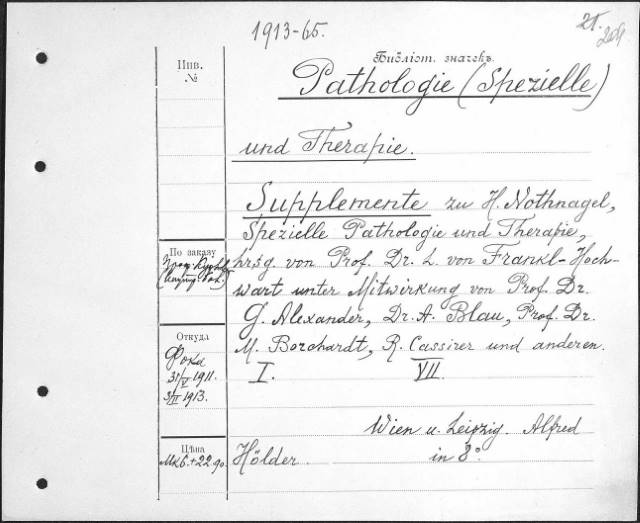 1913-65.
21.
204
Инв.
№
Библіот. значекъ
Pathologie (Spezielle)
und Therapie.
Supplemente zu H. Nothnagel,
Spezielle Pathologie und Therapie,
hrsg. von Prof. Dr. L. von Frankl-Hoch-
wart unter Mitwirkung von Prof. Dr.
G. Alexander, Dr. A. Blau, Prof. Dr.
M. Borchardt, R. Cassirer und anderen.
I. VII.
Wien u. Leipzig. Alfred
Hölder. in 8º
По заказу
Откуда
Фока
31/V 1911.
3/II 1913.
Цѣна
Mk 6.+22.90